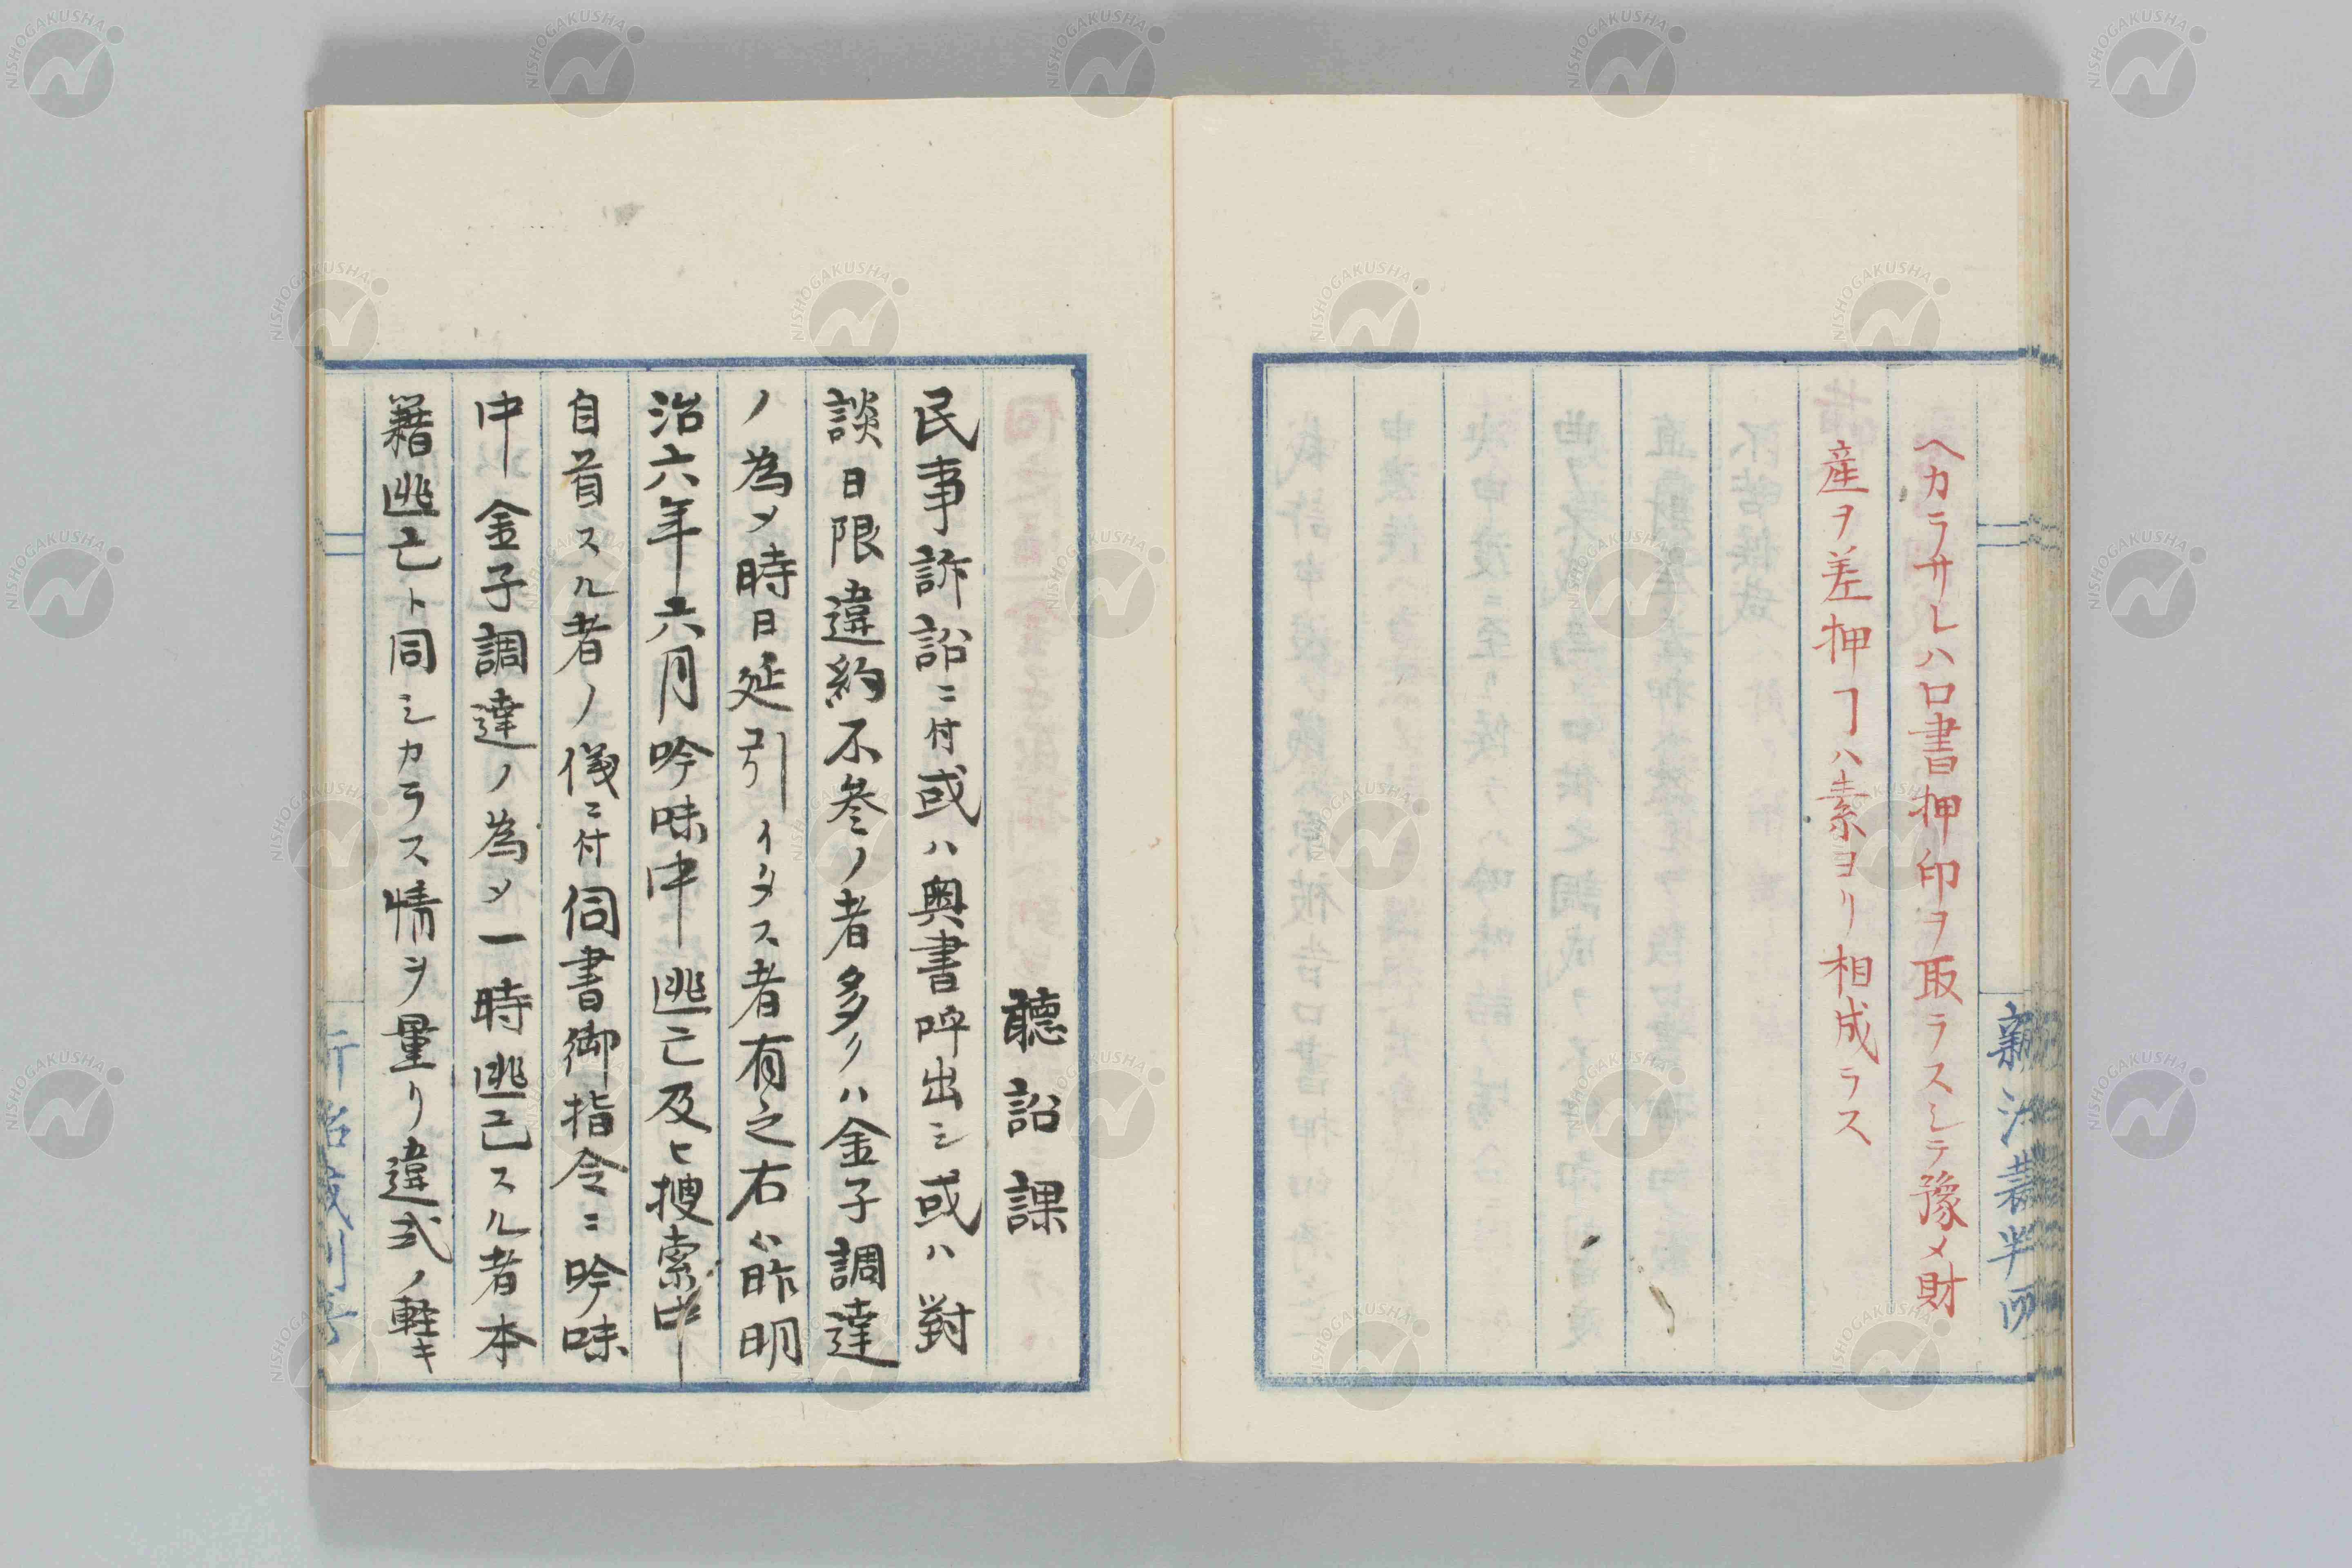 ヘカラサレハ口書押印ヲ取ラスシテ豫メ財
産ヲ差押ヿハ素ヨリ相成ラス
聽訟課
民事訴訟ニ付或ハ奥書呼出シ或ハ對
談日限違約不參ノ者多クハ金子調達
ノ為メ時日延引イタス者有之右ハ昨明
治六年六月吟味中逃亡及ヒ搜索中
自首スル者ノ儀ニ付伺書御指令ニ吟味
中金子調達ノ為メ一時逃亡スル者本
籍逃亡ト同シカラス情ヲ量リ違式ノ軽キ
NISHOGAKUSHA